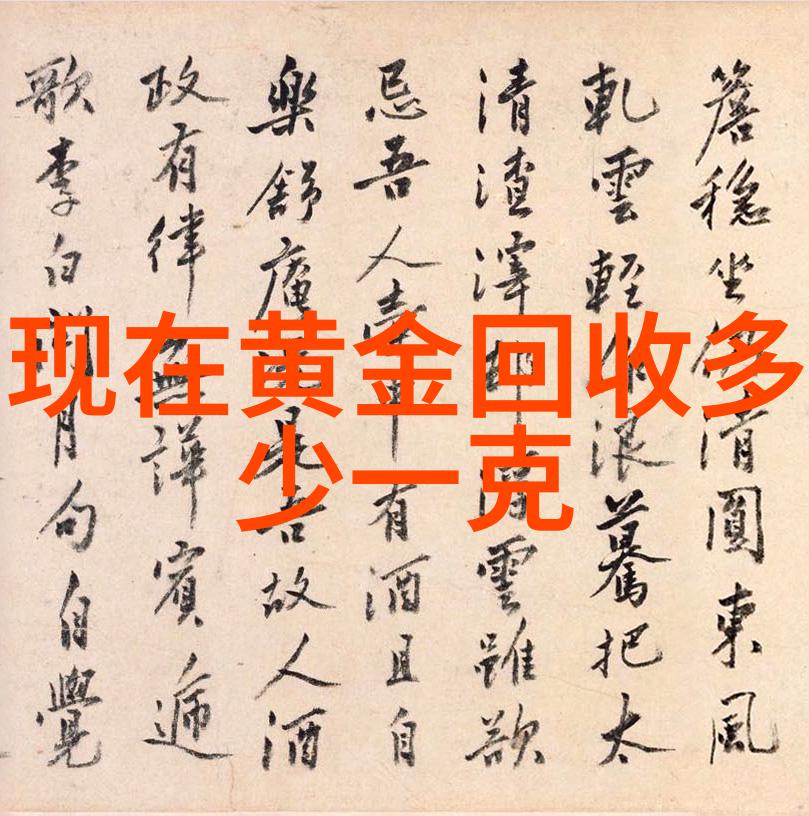 现在黄金回收多
少一克
簷穩坐清圓東風
軋雲輕浪驀把太
清渣滓雲雖欲
忌吾人壽有酒且自
樂舒庵是吾故人酒
政有律無譁賓遞
歌李白問月句自覺